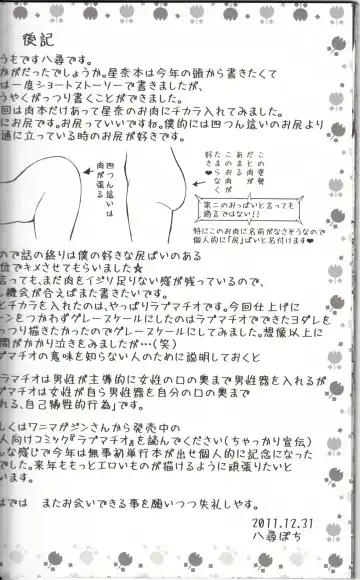 後記
うもです八尋です。
かがだったでしょうか。星奈本は今年の頭から書きたくて
は一度ショートストーリーで書きましたが、
うやくがっつり書くことができました。
回は肉本だけあって星奈のお肉にチカラ入れてみました。
にお尻です。お尻っていいですね。僕的には四つん這いのお尻より
通に立っている時のお尻が好きです。
四つん這いは
肉が張る
だこの姿勢
まとの
あるお肉が
こな
たまらなく
好き♥
第二のおっぱいと言っても
過言ではない!!
特にこのお肉に名前がなさそうなので
個人的に「尻」ぱいと名付けます♥
ので話の終りは僕の好きな尻ぱいのある
位でキメさせてもらいました★
言っても、まだ肉をイジリ足りない感が残っているので、
機会が合えばまた書きたいです。
とチカラを入れたのは、やっぱりラプマチオです。今回仕上げに
ーンをつかわずグレースケールにしたのはラプマチオでできたヨダレを
っつり描きたかったのでグレースケールにしてみました。想像以上に
間がかかり泣きをみましたが…(笑)
プマチオの意味を知らない人のために説明しておくと
ラマチオは男性が主導的に女性の口の奥まで男性器を入れるが
プマチオは女性が自ら男性器を自分の口の奥まで
れる、自己犠牲的行為」です。
しくはワニマガジンさんから発売中の
人向けコミック『ラプマチオ』を読んでください(ちゃっかり宣伝)
んな感じで今年は無事初単行本が出せ個人的に記念になった
でした。来年ももっとエロいものが描けるように頑張りたいと
います。
はでは　またお会いできる事を願いつつ失礼しやす。
2011.12.31
八尋ぽち